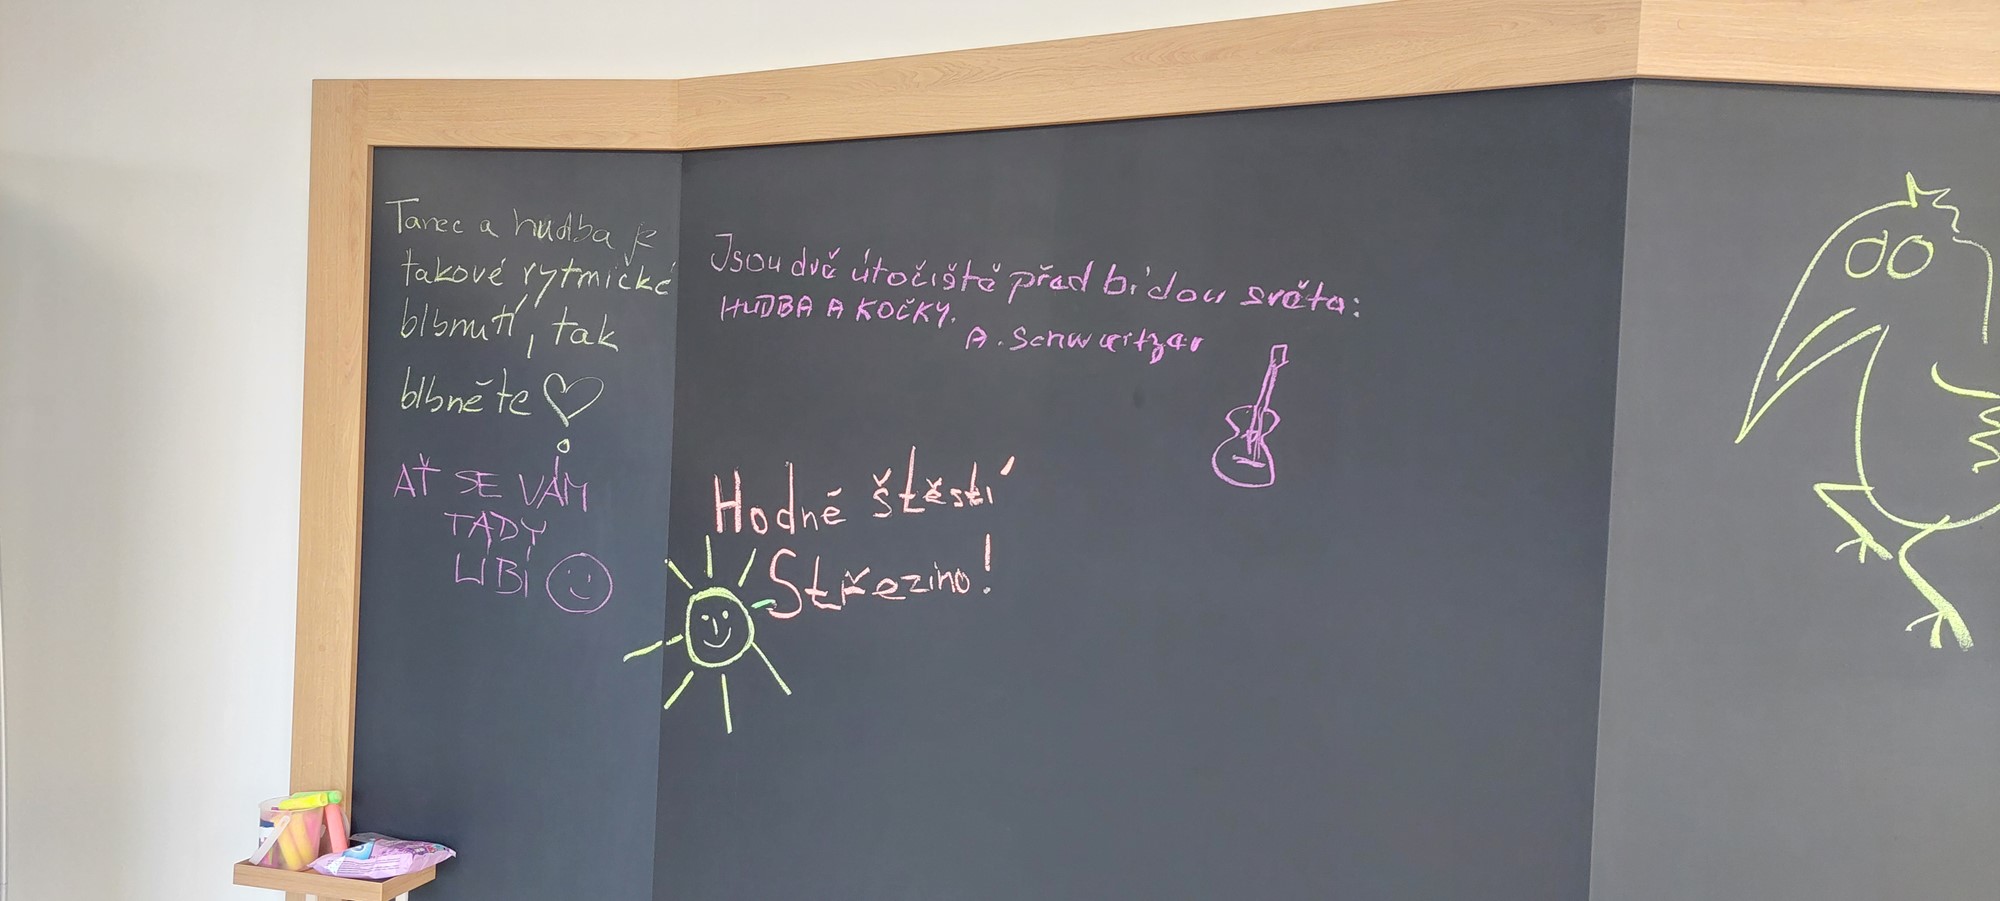 Tanec a hudba je
takové rytmické
blbnutí, tak
blbněte
AŤ SE VÁM
TADY
LÍBÍ
Jsou dvě útočiště před bídou světa:
HUDBA A KOČKY.
A. Schweitzer
Hodně štěstí
Střezino!